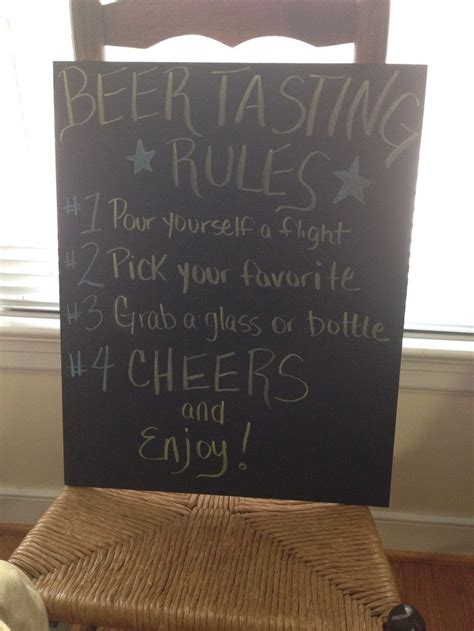 BEER TASTING
RULES
#1 Pour yourself a flight
#2 Pick your favorite
#3 Grab a glass or bottle
#4 CHEERS
and
Enjoy!